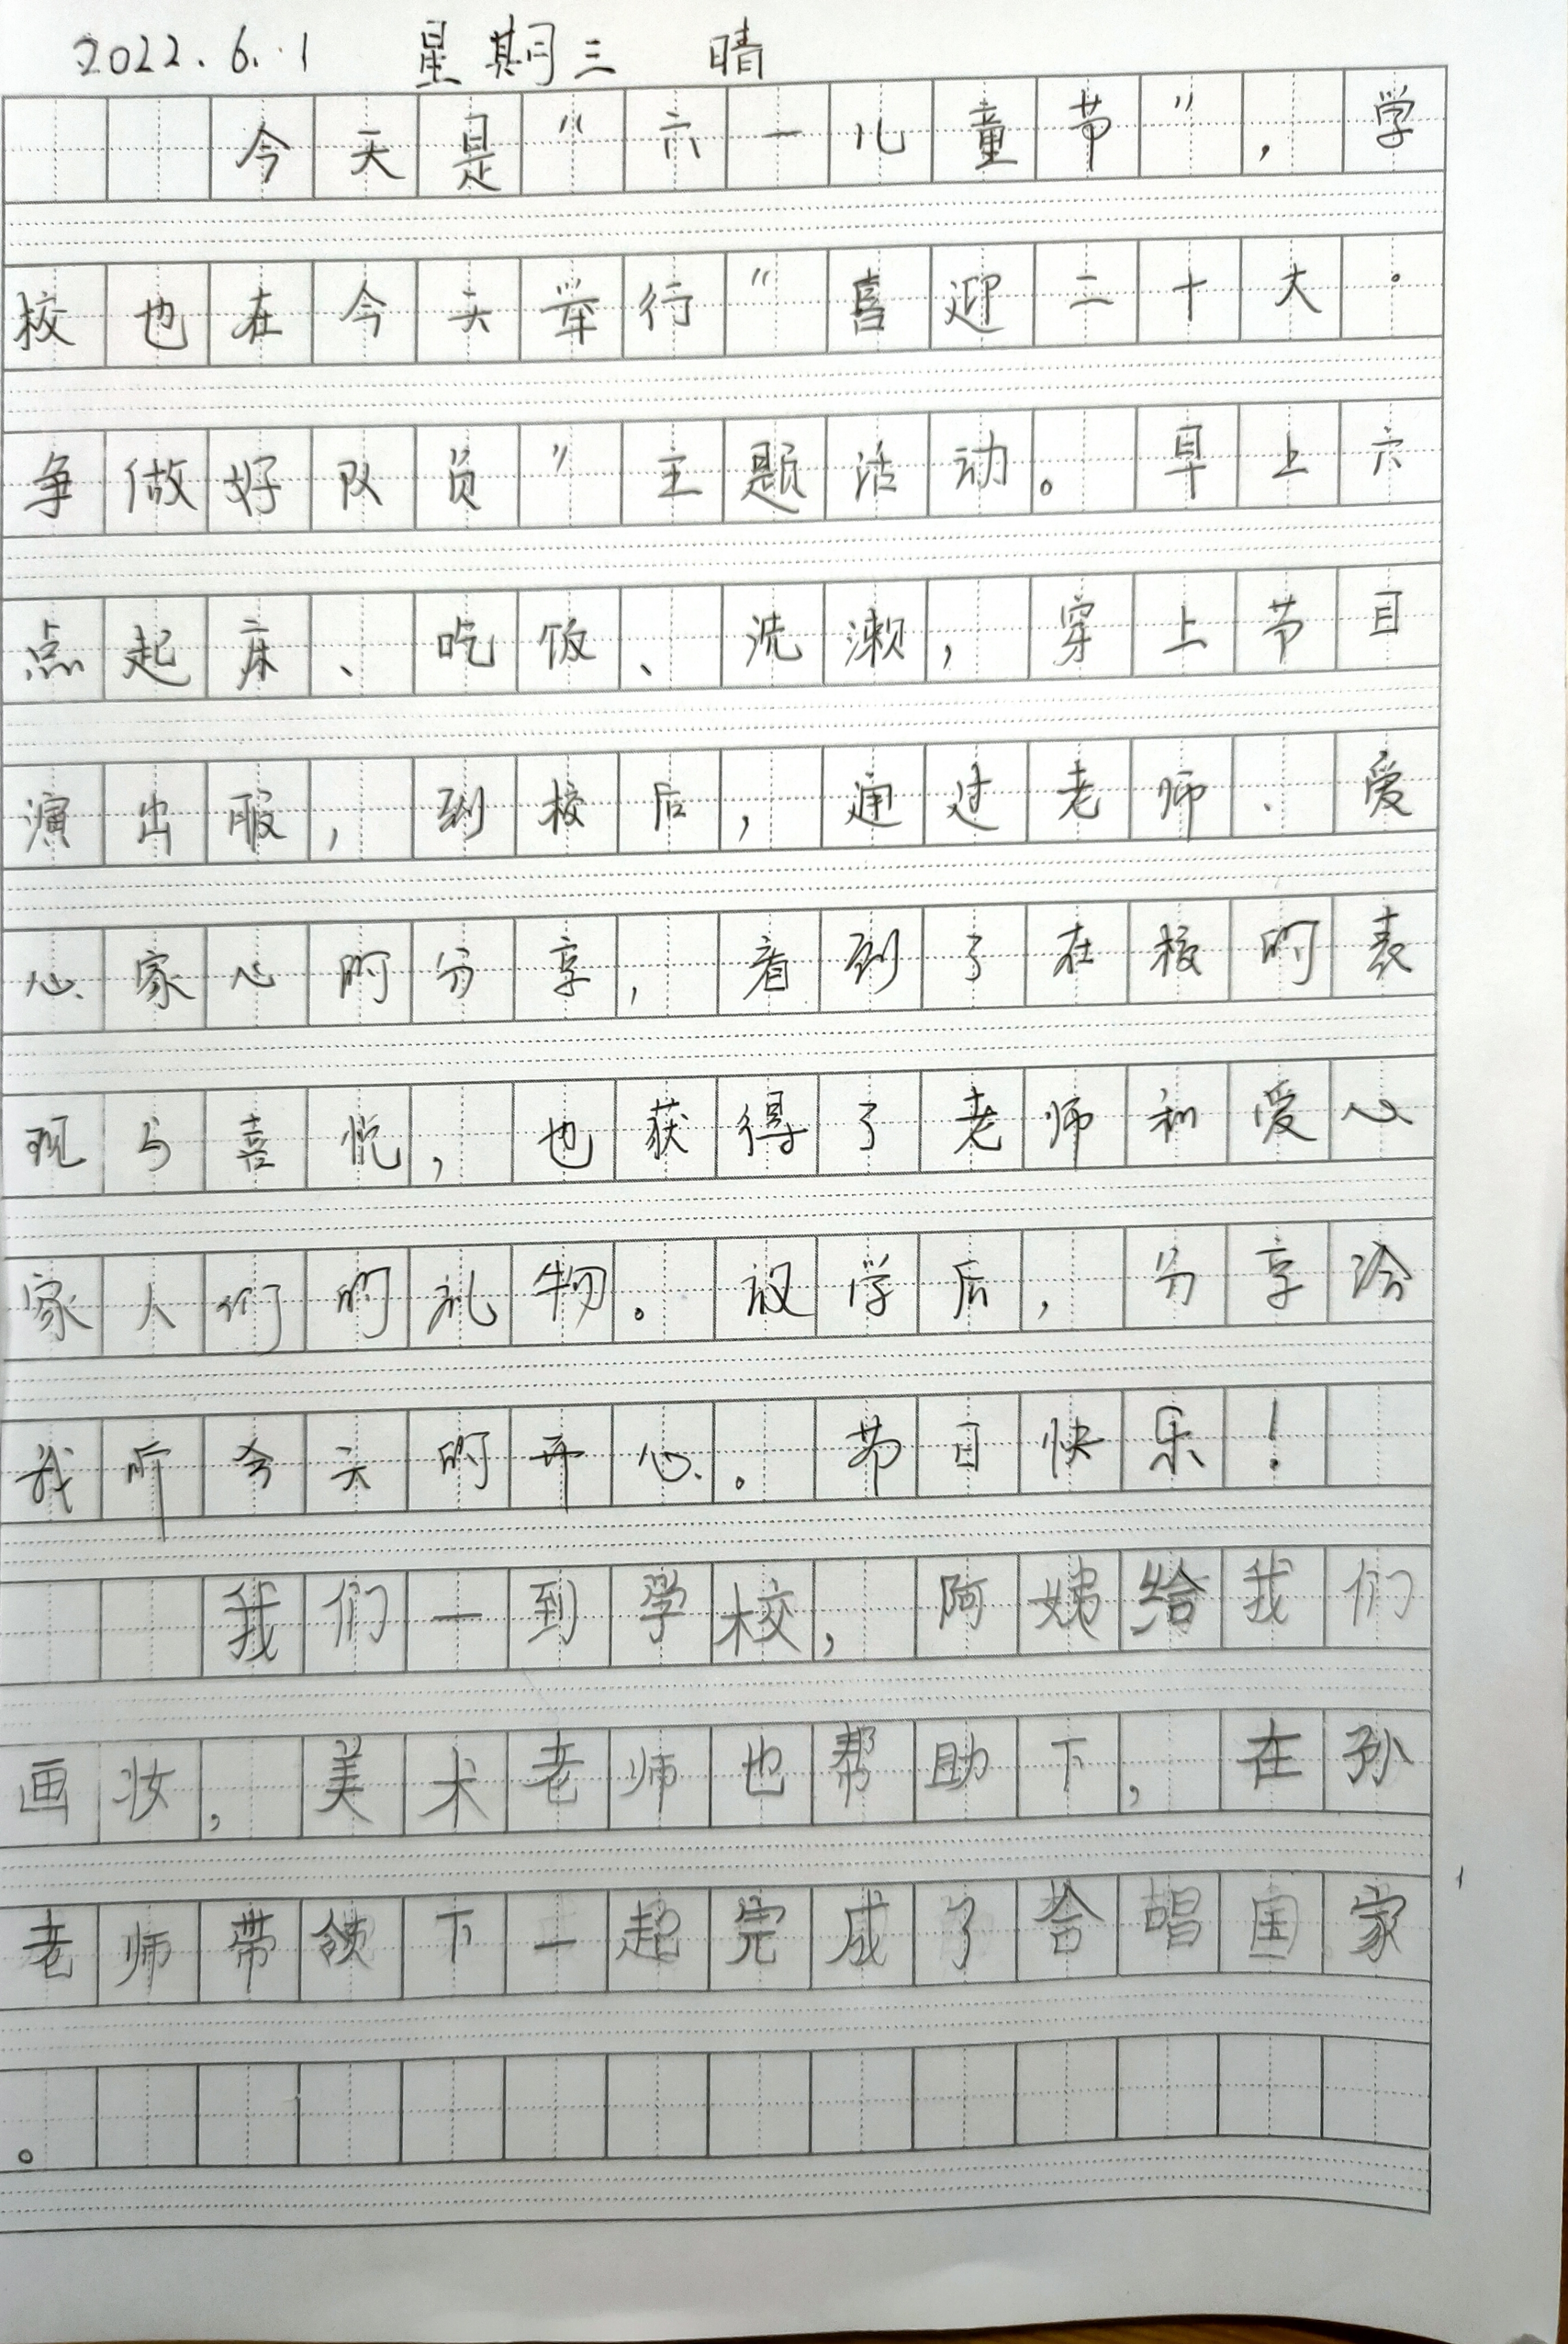 2022.6.1 星期三 晴
今天是“六一儿童节”，学
校也在今天举行“喜迎二十大·
争做好队员”主题活动。早上六
点起床、吃饭、洗漱，穿上节目
演出服，到校后，通过老师、爱
心家心的分享，看到了在校的表
现与喜悦，也获得了老师和爱心
家人们的礼物。放学后，分享给
我听今天的开心。节日快乐！
我们一到学校，阿姨给我们
画妆，美术老师也帮助下，在孙
老师带领下一起完成了合唱国家
。